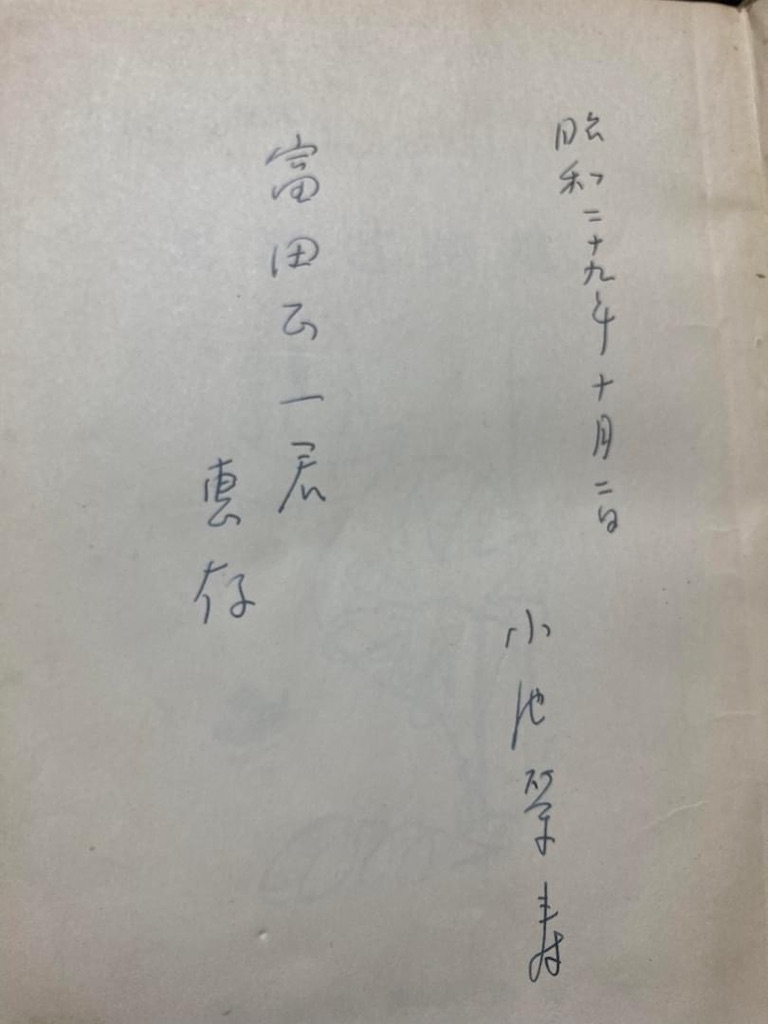 昭和二十九年十月二日
小池 寿
富田 一君
恵存